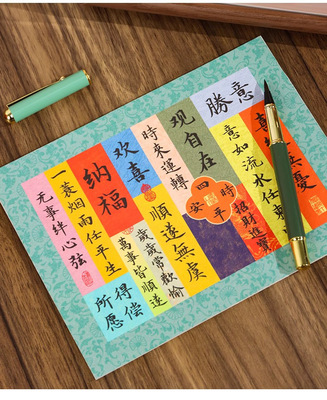 勝意
無憂
意如流水任東
招財進寶
观自在
四時平安
時來運轉
欢喜
順遂無虞
歲歲常歡愉
萬事皆順遂
纳福
一蓑烟雨任平生
无事絆心弦
得偿
所愿